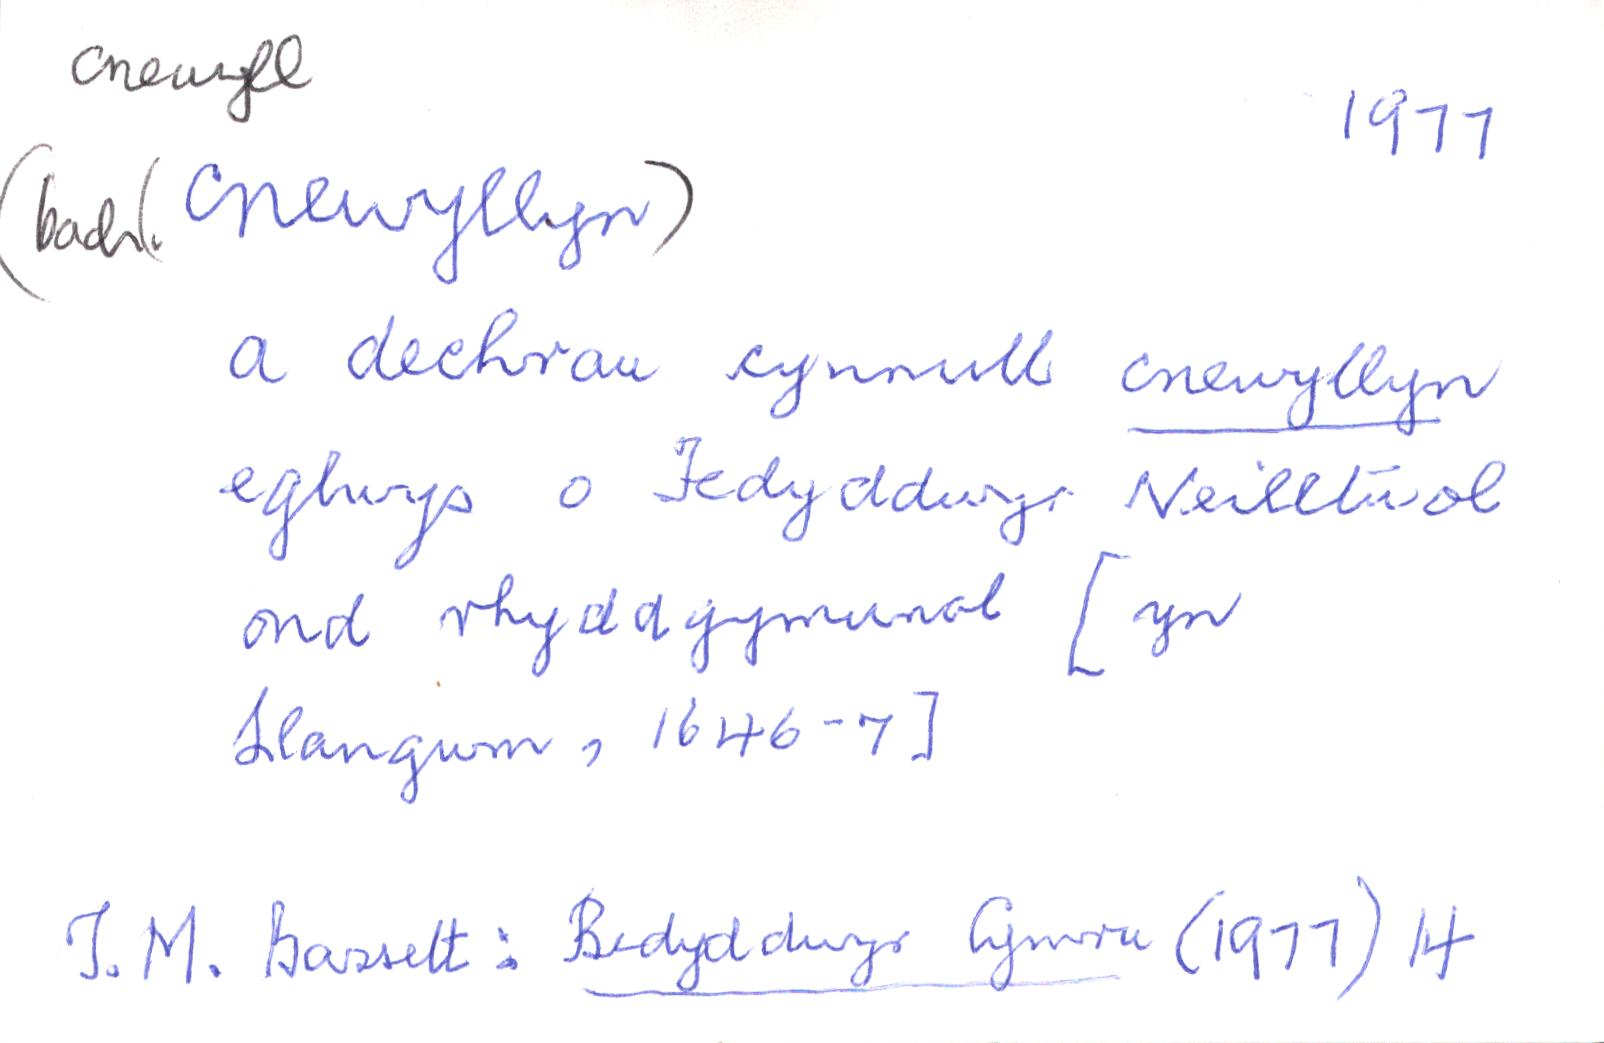 cnewyll
1977
(bach. Cnewyllyn)
a dechrau cynnull cnewyllyn
eglwys o Fedyddwyr Neilltuol
ond rhyddgymunol [yn
Llangwm, 1646-7]
T. M. Bassett: Bedyddwyr Cymru (1977) 14